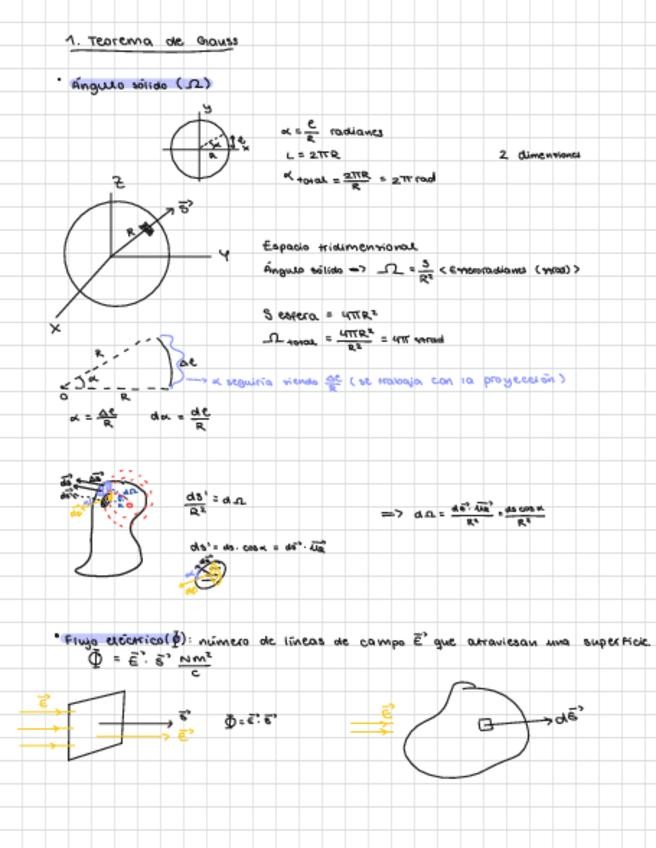 1. Teorema de Gauss
• Ángulo sólido (Ω)
y
α = e/R radianes
L = 2πR
2 dimensiones
R
x
α total = 2πR/R = 2π rad
Z
S⃗
R
Y
X
Espacio tridimensional
Ángulo sólido => Ω = S/R² < Estereorradianes (srad) >
S esfera = 4πR²
Ω total = 4πR²/R² = 4π srad
R
Δe
α
→ α seguiría siendo Δe/R (se trabaja con la proyección)
O
R
α = Δe/R dα = de/R
ds'/R² = dΩ
=> dΩ = ds⃗ · u⃗R/R² = ds cosα/R²
ds' = ds · cosα = ds⃗ · u⃗R
• Flujo eléctrico (Φ): número de líneas de campo E⃗ que atraviesan una superficie.
Φ = E⃗ · S⃗ Nm²/C
E⃗
S⃗
E⃗
Φ = E⃗ · S⃗
E⃗
dS⃗